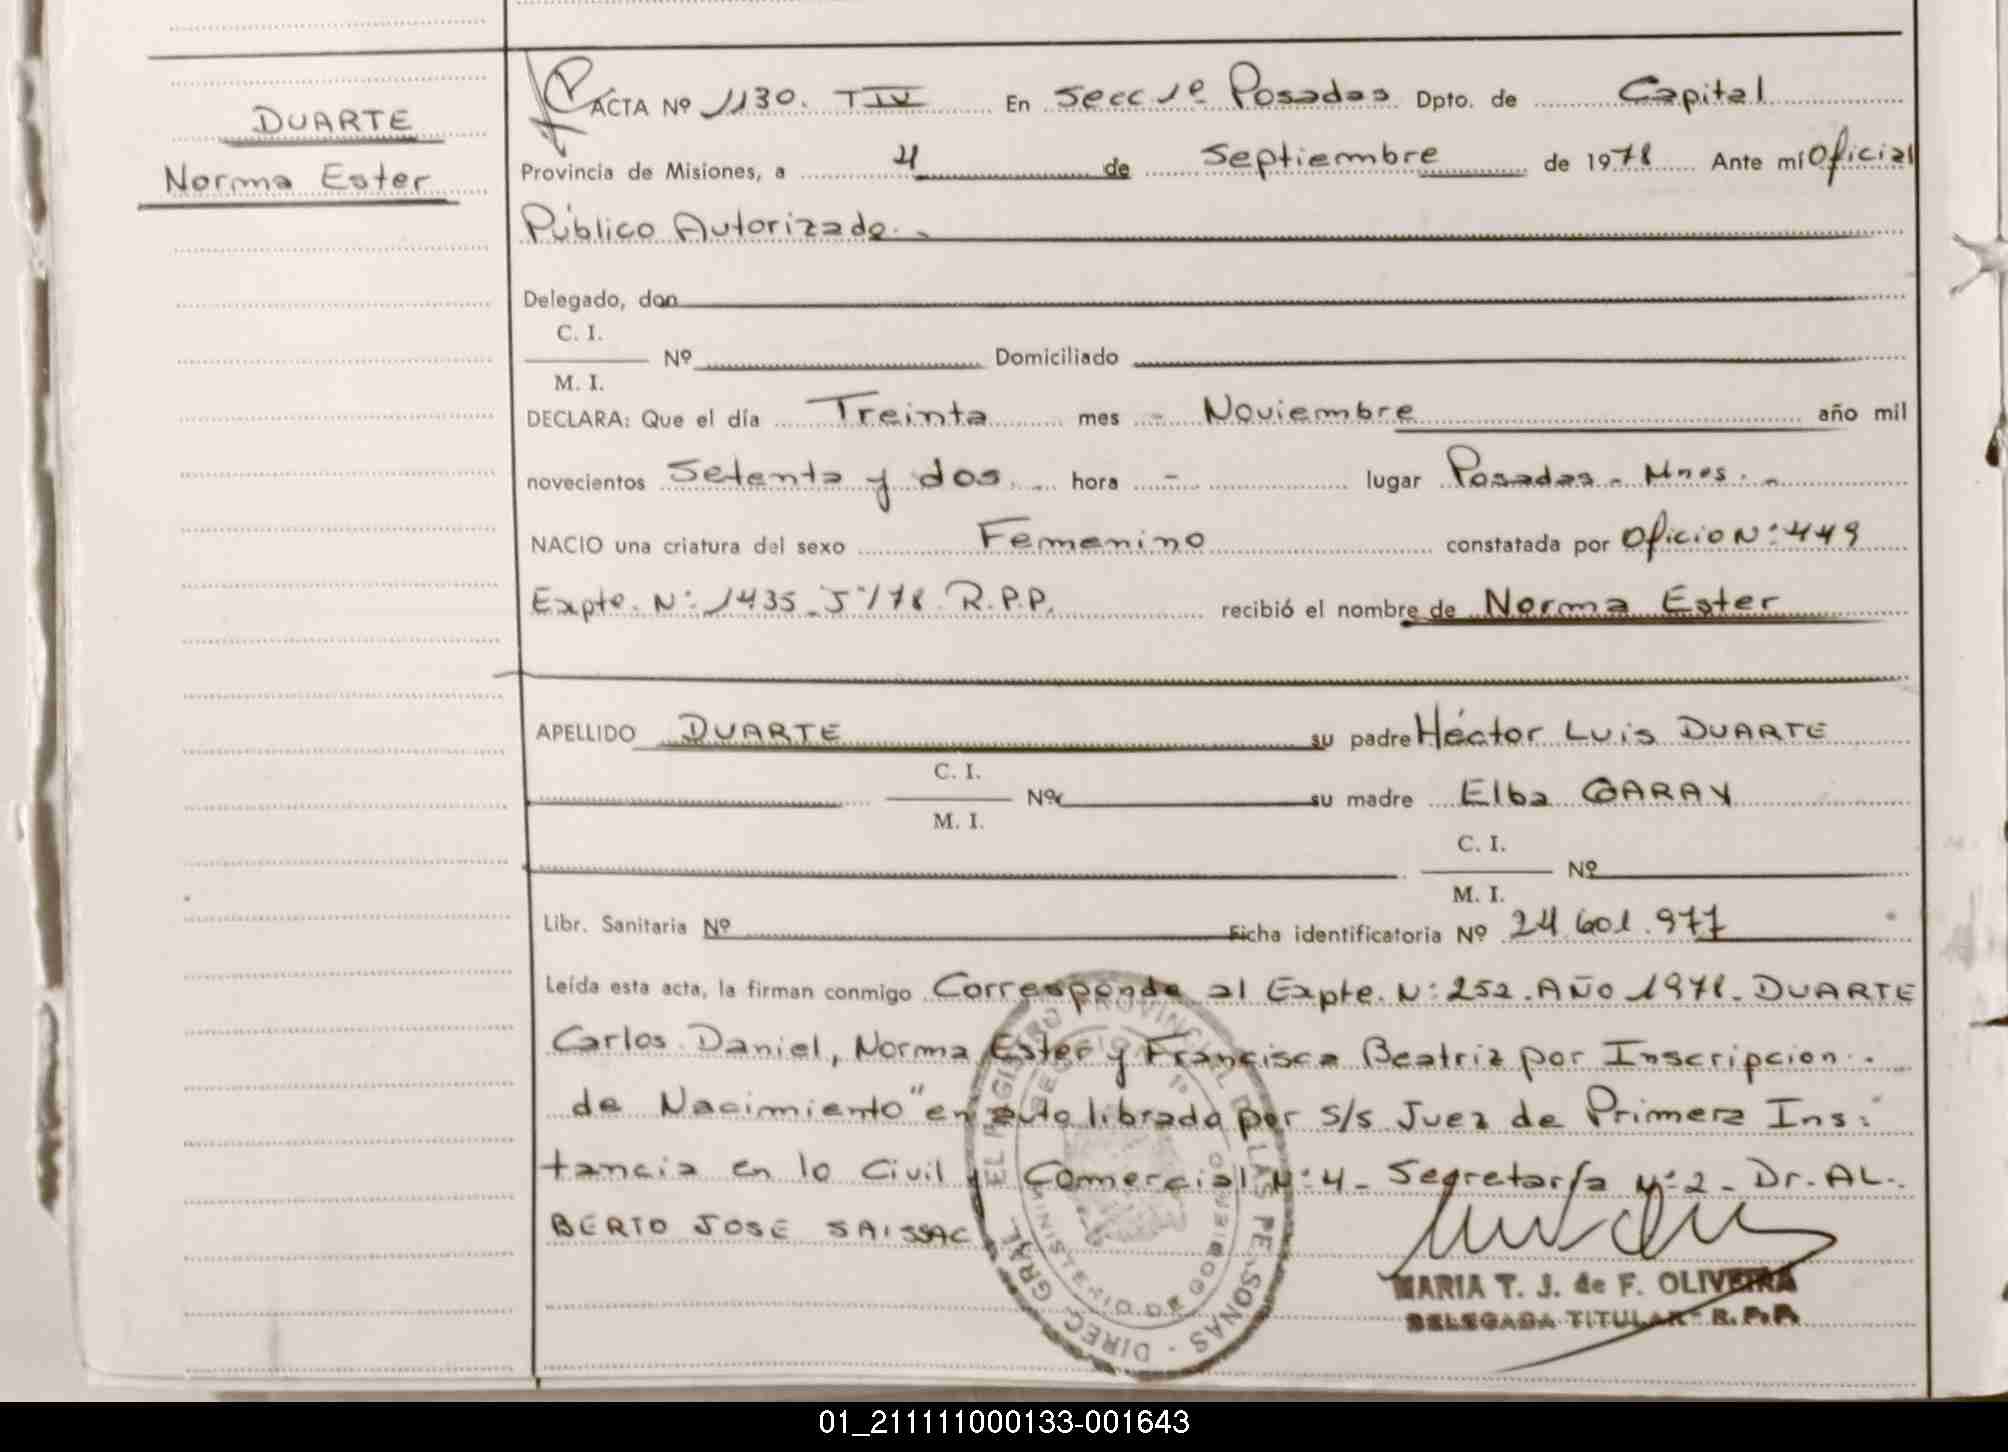 DUARTE
Norma Ester
ACTA Nº 1130. TIV En Secc 1º Posadas Dpto. de Capital
Provincia de Misiones, a 4 de Septiembre de 1978 Ante mí Oficial
Público Autorizado.-
Delegado, don
C. I.
Nº Domiciliado
M. I.
DECLARA: Que el día Treinta mes - Noviembre año mil
novecientos Setenta y dos. hora - lugar Posadas - Mnes. -
NACIO una criatura del sexo Femenino constatada por Oficio Nº 449
Expte. Nº 1435-J"/78 R.P.P. recibió el nombre de Norma Ester
APELLIDO DUARTE su padre Héctor Luis DUARTE
C. I.
Nº su madre Elba GARAY
M. I.
C. I.
Nº
M. I.
Libr. Sanitaria Nº Ficha identificatoria Nº 24.601.977
Leída esta acta, la firman conmigo Corresponde al Expte. Nº 252. AÑO 1978. DUARTE
Carlos Daniel, Norma Ester y Francisca Beatriz por Inscripcion
de Nacimiento" en auto librado por S/S Juez de Primera Ins-
tancia en lo Civil y Comercial Nº 4 - Secretaría Nº 2 - Dr. AL-
BERTO JOSE SAISSAC
DIREC. GRAL. DEL REGISTRO PROVINCIAL DE LAS PERSONAS
MARIA T. J. de F. OLIVEIRA
DELEGADA TITULAR - R. P. P.
01_211111000133-001643